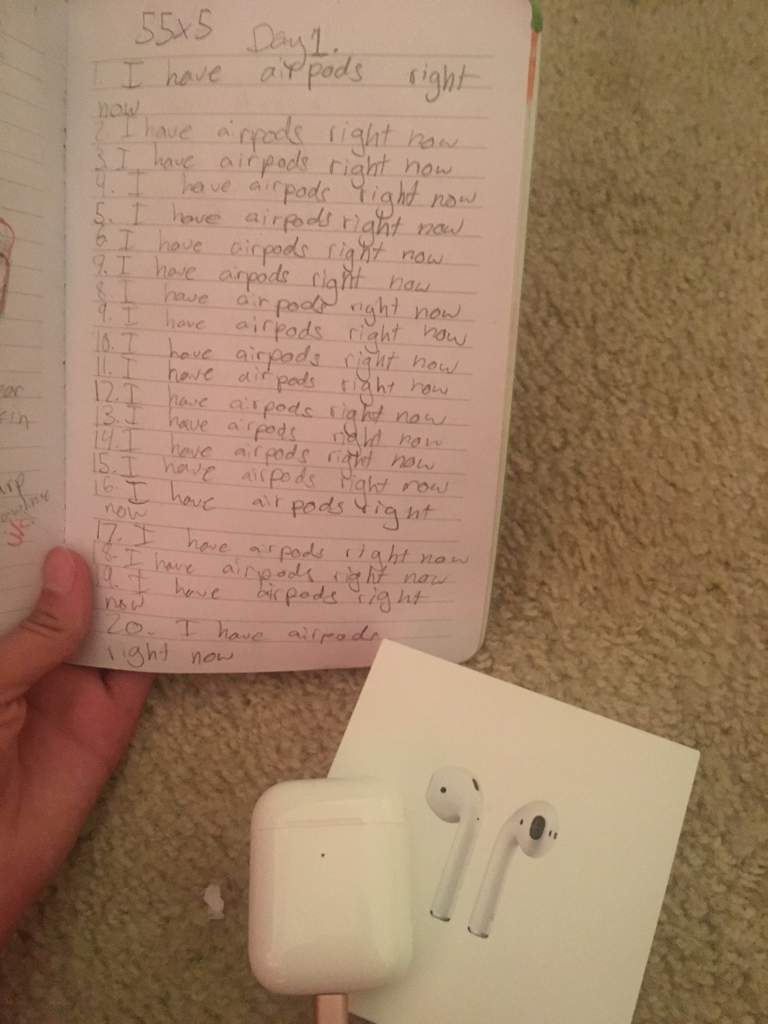 55x5 Day 1.
1 I have airpods right
now
2 I have airpods right now
3 I have airpods right now
4. I have airpods right now
5. I have airpods right now
6 I have airpods right now
9. I have airpods right now
8 I have airpods right now
9. I have airpods right now
10. I have airpods right now
11. I have airpods right now
12. I have airpods right now
13. I have airpods right now
14 I have airpods right now
15. I have airpods right now
16. I have airpods right
now
17. I have airpods right now
18. I have airpods right now
19. I have airpods right
now
20. I have airpods
right now